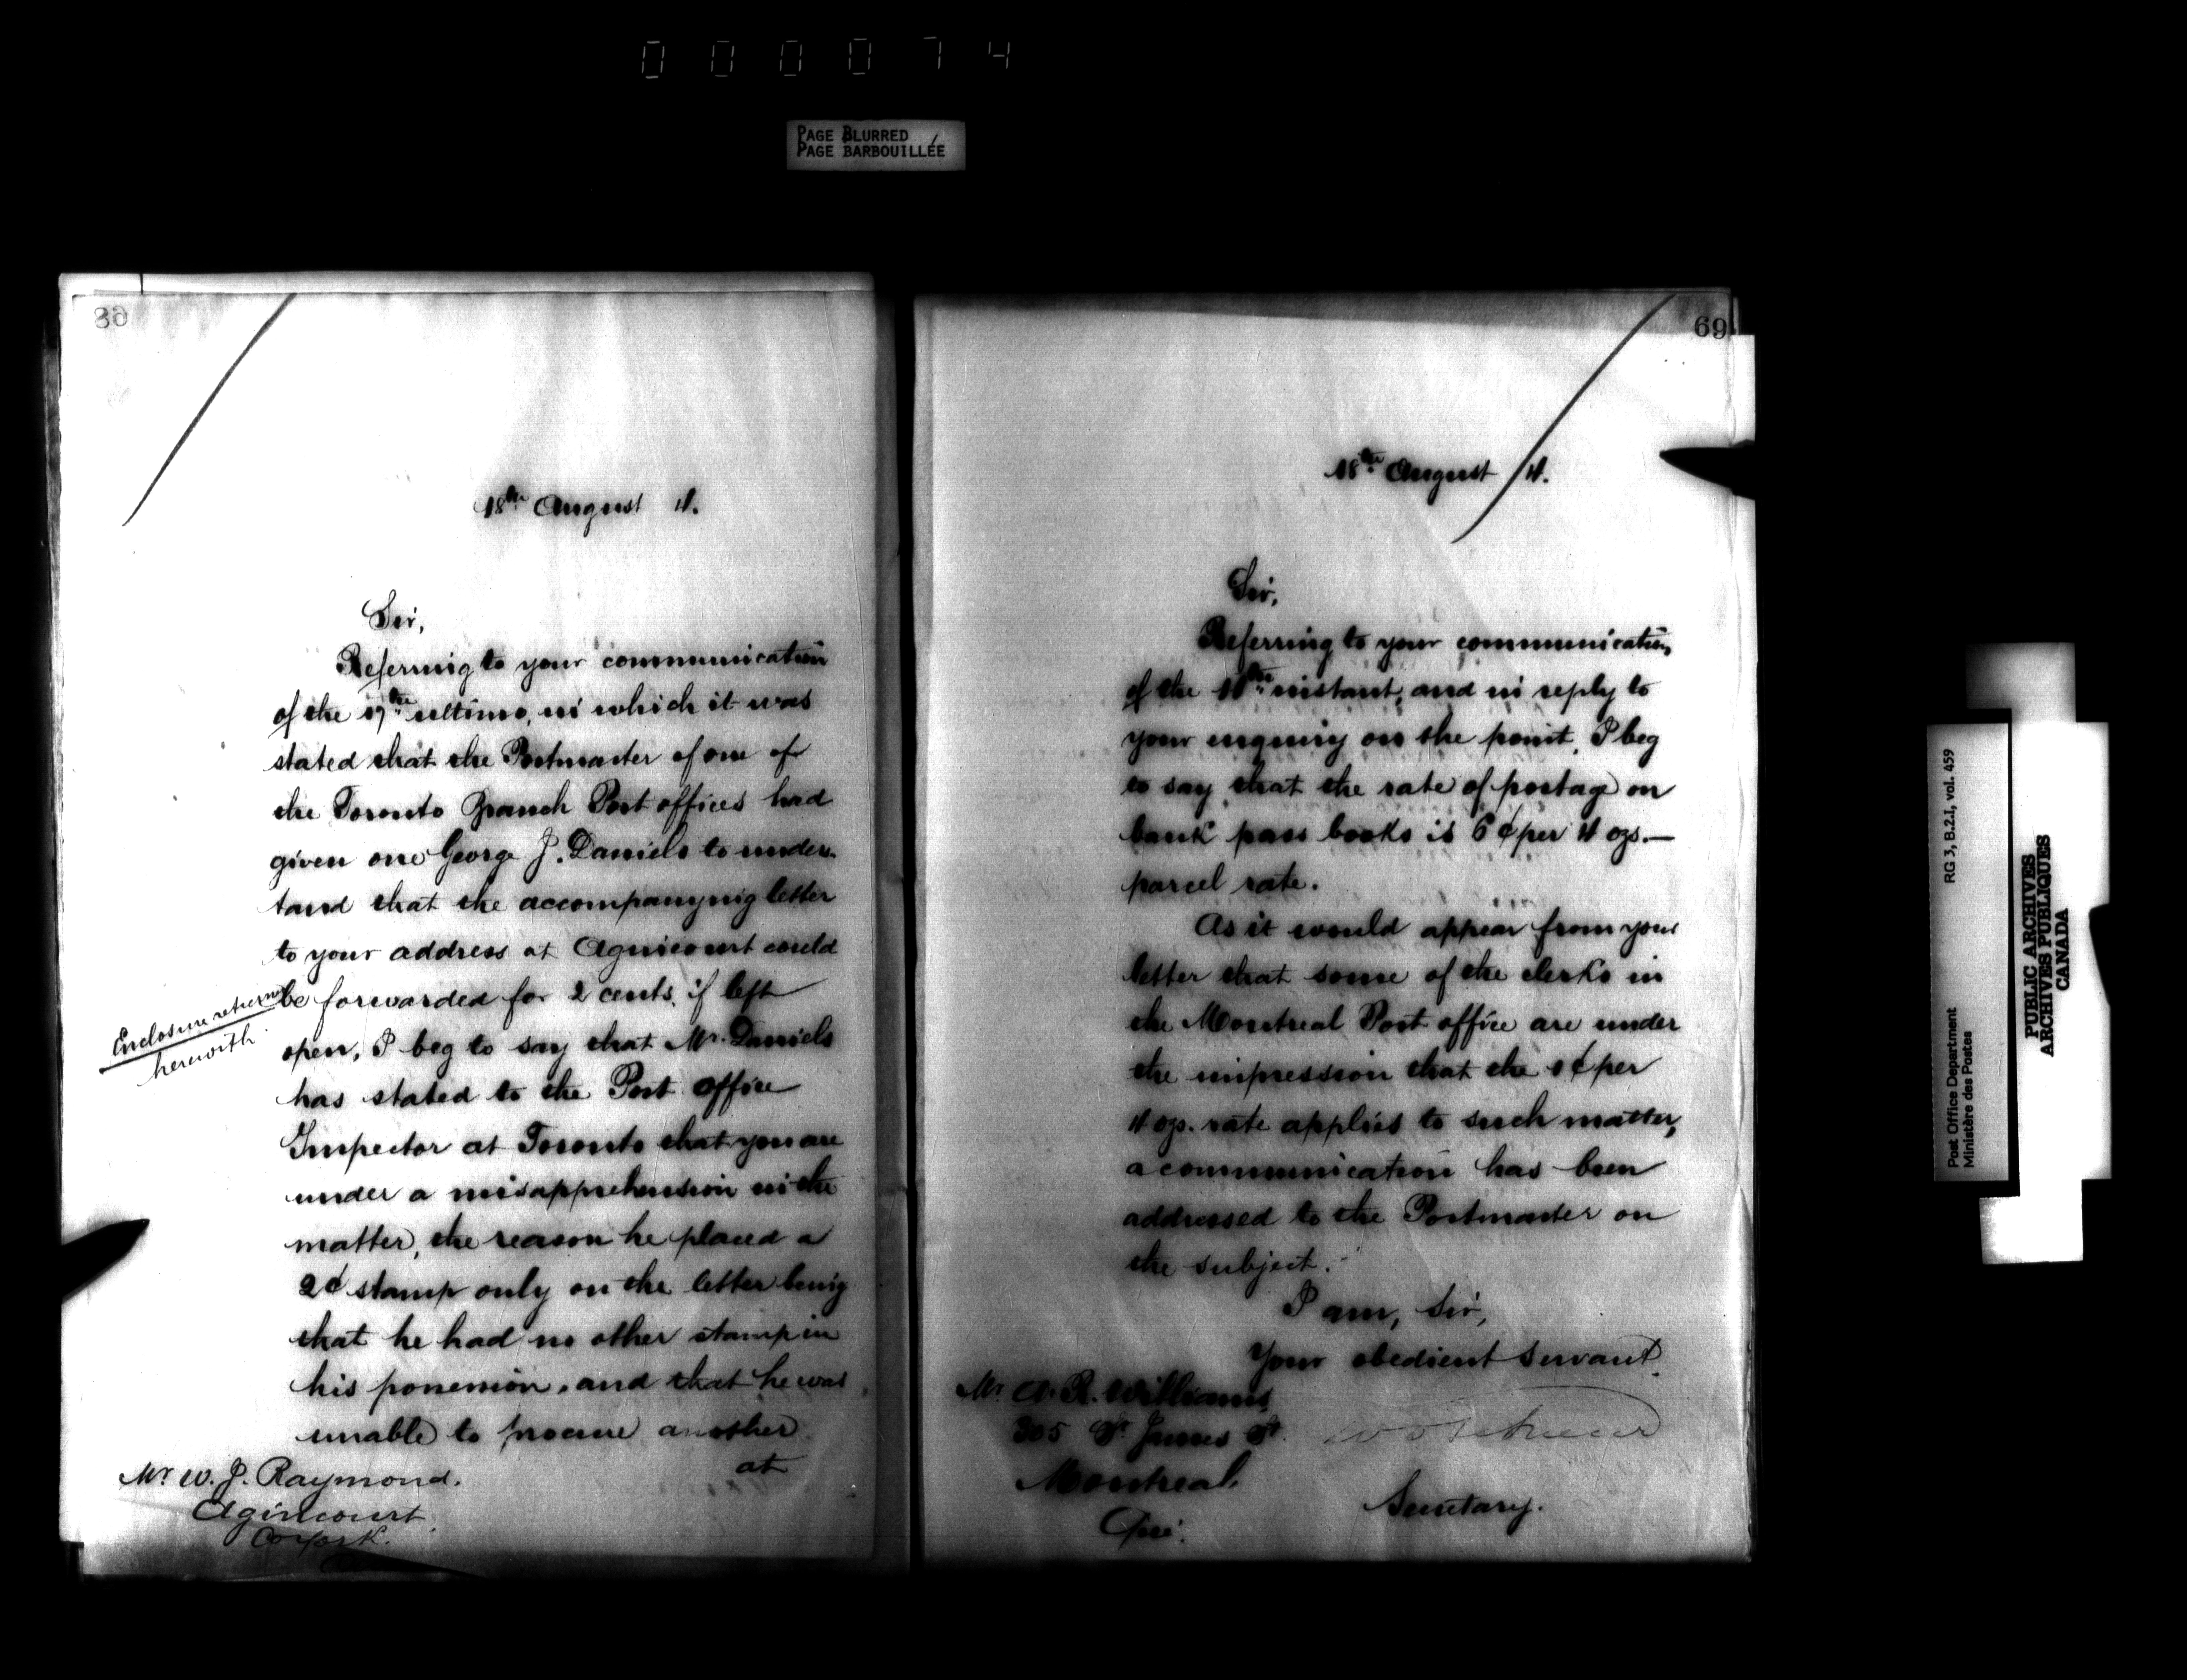 000074
PAGE BLURRED
PAGE BARBOUILLÉE
18th August 4.
Sir,
Referring to your communication
of the 17th ultimo, in which it was
stated that the Postmaster of one of
the Toronto Branch Post offices had
given one George J. Daniels to unders-
tand that the accompanying letter
to your address at Agincourt could
be forwarded for 2 cents, if left
open, I beg to say that Mr. Daniels
has stated to the Post Office
Inspector at Toronto that you are
under a misapprehension in the
matter, the reason he placed a
2¢ stamp only on the letter being
that he had no other stamp in
his possession, and that he was
unable to procure another
at
Enclosure returned
herewith
Mr. W. J. Raymond.
Agincourt
Co York.
69
18th August 4.
Sir,
Referring to your communication
of the instant, and in reply to
your enquiry on the point, I beg
to say that the rate of postage on
bank pass books is 6¢ per 4 ozs.—
parcel rate.
As it would appear from your
letter that some of the clerks in
the Montreal Post office are under
the impression that the 1¢ per
4 ozs. rate applies to such matter,
a communication has been
addressed to the Postmaster on
the subject.
I am, Sir,
Your obedient servant
Secretary.
Mr. A. R. Williams,
305 St. James St.
Montreal.
Que.
RG 3, B.2.1, vol. 459
Post Office Department
Ministère des Postes
PUBLIC ARCHIVES
ARCHIVES PUBLIQUES
CANADA